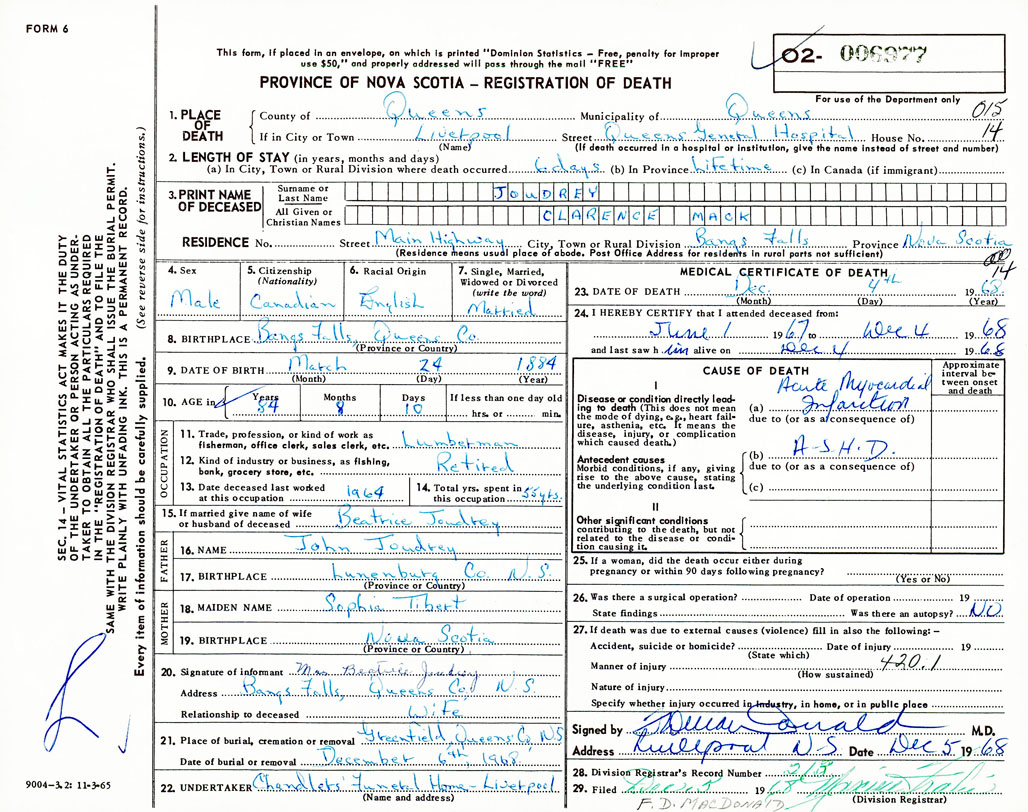 FORM 6
This form, if placed in an envelope, on which is printed "Dominion Statistics – Free, penalty for improper
use $50," and properly addressed will pass through the mail "FREE"
O2- 006977
PROVINCE OF NOVA SCOTIA – REGISTRATION OF DEATH
For use of the Department only
015
14
1. PLACE OF DEATH
County of Queens Municipality of Queens
If in City or Town Liverpool Street Queens General Hospital House No.
(Name) (If death occurred in a hospital or institution, give the name instead of street and number)
2. LENGTH OF STAY (in years, months and days)
(a) In City, Town or Rural Division where death occurred 6 days (b) In Province Lifetime (c) In Canada (if immigrant)
3. PRINT NAME OF DECEASED
Surname or Last Name JOUDREY
All Given or Christian Names CLARENCE MACK
RESIDENCE No. Street Main Highway City, Town or Rural Division Bangs Falls Province Nova Scotia
(Residence means usual place of abode. Post Office Address for residents in rural parts not sufficient)
14
4. Sex
Male
5. Citizenship
(Nationality)
Canadian
6. Racial Origin
English
7. Single, Married,
Widowed or Divorced
(write the word)
Married
8. BIRTHPLACE Bangs Falls, Queens Co.
(Province or Country)
9. DATE OF BIRTH March 24 1884
(Month) (Day) (Year)
10. AGE in Years Months Days If less than one day old
84 8 10 hrs. or min.
OCCUPATION
11. Trade, profession, or kind of work as
fisherman, office clerk, sales clerk, etc. Lumberman
12. Kind of industry or business, as fishing,
bank, grocery store, etc. Retired
13. Date deceased last worked
at this occupation 1964
14. Total yrs. spent in
this occupation 55 yrs.
15. If married give name of wife
or husband of deceased Beatrice Joudrey
FATHER
16. NAME John Joudrey
17. BIRTHPLACE Lunenburg Co. N.S.
(Province or Country)
MOTHER
18. MAIDEN NAME Sophia Tibert
19. BIRTHPLACE Nova Scotia
(Province or Country)
20. Signature of informant Mrs Beatrice Joudrey
Address Bangs Falls, Queens Co., N.S.
Relationship to deceased Wife
21. Place of burial, cremation or removal Greenfield, Queens Co. N.S
Date of burial or removal December 6th 1968
22. UNDERTAKER Chandlers' Funeral Home-Liverpool
(Name and address)
MEDICAL CERTIFICATE OF DEATH
23. DATE OF DEATH Dec. 4th 1968
(Month) (Day) (Year)
24. I HEREBY CERTIFY that I attended deceased from:
June 1 1967 to Dec 4 1968
and last saw him alive on Dec 4 1968
CAUSE OF DEATH
Approximate
interval be-
tween onset
and death
I
Disease or condition directly lead-
ing to death (This does not mean
the mode of dying, e.g., heart fail-
ure, asthenia, etc. It means the
disease, injury, or complication
which caused death.)
(a) Acute Myocardial
Infarction
due to (or as a consequence of)
Antecedent causes
Morbid conditions, if any, giving
rise to the above cause, stating
the underlying condition last.
(b) A-S-H.D.
due to (or as a consequence of)
(c)
II
Other significant conditions
contributing to the death, but not
related to the disease or condi-
tion causing it.
25. If a woman, did the death occur either during
pregnancy or within 90 days following pregnancy?
(Yes or No)
26. Was there a surgical operation? Date of operation 19
State findings Was there an autopsy? NO
27. If death was due to external causes (violence) fill in also the following: –
Accident, suicide or homicide? Date of injury 19
(State which)
Manner of injury 420.1
(How sustained)
Nature of injury
Specify whether injury occurred in industry, in home, or in public place
Signed by M.D.
Address Liverpool N.S. Date Dec 5 1968
28. Division Registrar's Record Number 215
29. Filed Dec. 5 1968
(Division Registrar)
F. D. MACDONALD
SEC. 14 – VITAL STATISTICS ACT MAKES IT THE DUTY
OF THE UNDERTAKER OR PERSON ACTING AS UNDER-
TAKER TO OBTAIN ALL THE PARTICULARS REQUIRED
IN THE "REGISTRATION OF DEATH" AND TO FILE THE
SAME WITH THE DIVISION REGISTRAR WHO SHALL ISSUE THE BURIAL PERMIT.
WRITE PLAINLY WITH UNFADING INK. THIS IS A PERMANENT RECORD.
Every item of information should be carefully supplied. (See reverse side for instructions.)
9004-3.2: 11-3-65